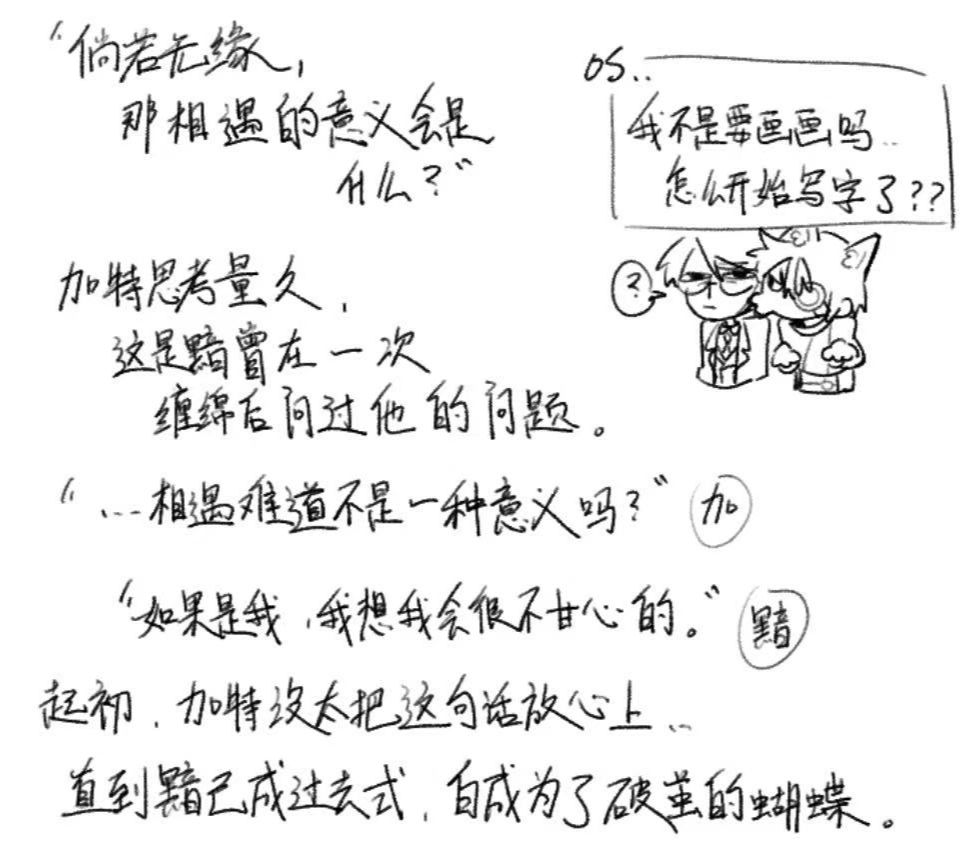 “倘若无缘，
那相遇的意义会是
什么？”
OS..
我不是要画画吗..
怎么开始写字了??
?
加特思考量久，
这是黯曾在一次
缠绵后问过他的问题。
“...相遇难道不是一种意义吗？” 加
“如果是我，我想我会很不甘心的。” 黯
起初，加特没太把这句话放心上...
直到黯已成过去式，自成为了破茧的蝴蝶。